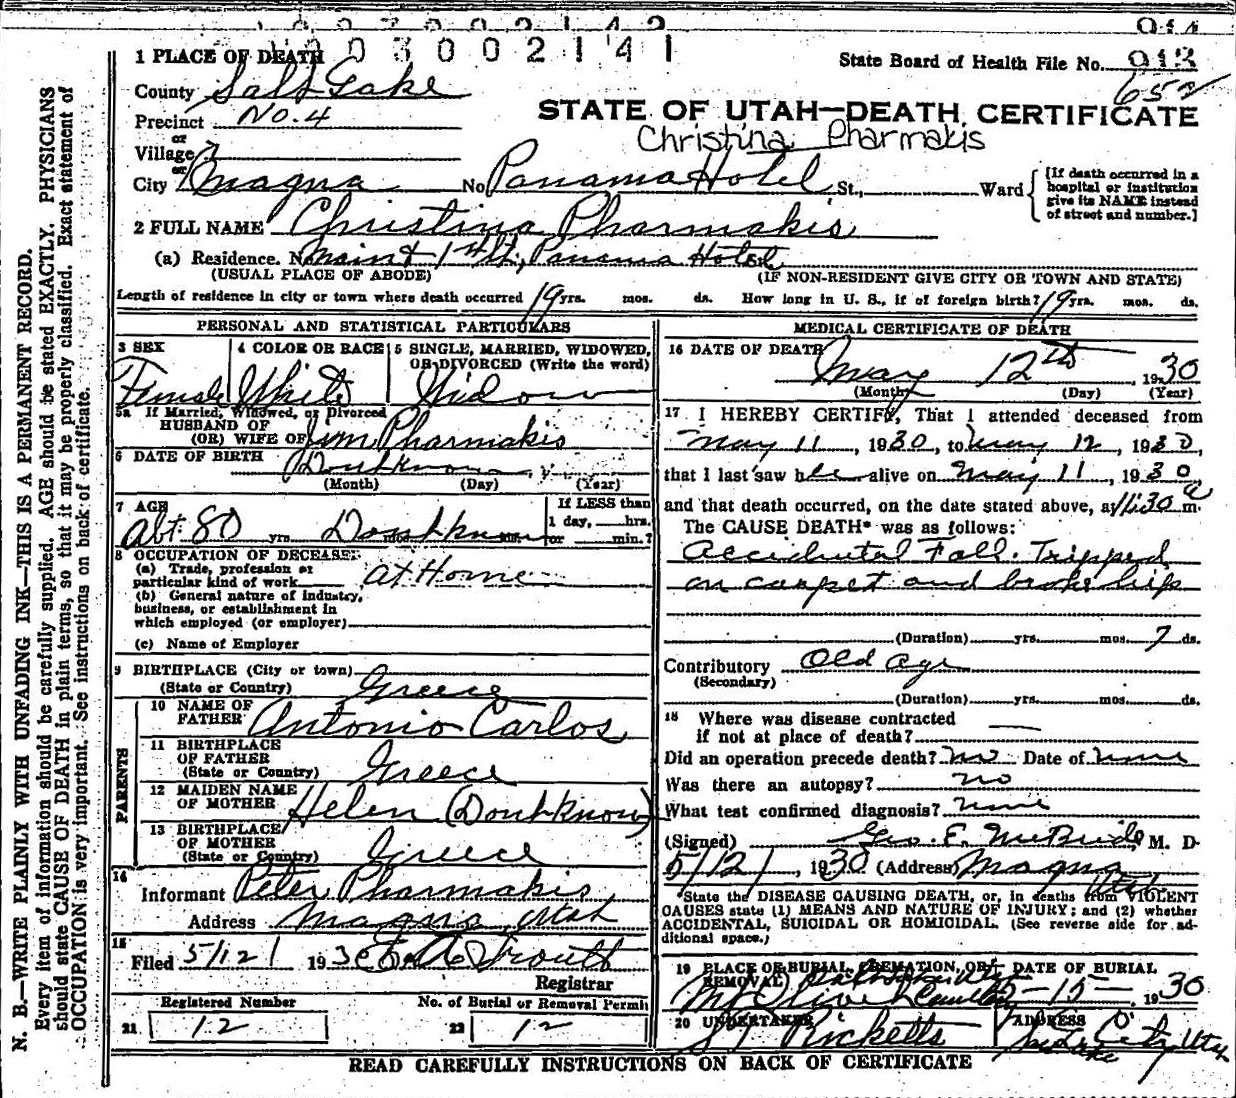 003002141
1 PLACE OF DEATH
State Board of Health File No. 913
652
County Salt Lake
Precinct No. 4
STATE OF UTAH—DEATH CERTIFICATE
or
Village
Christina Pharmakis
or
City Magna No. Panama Hotel St., Ward
[If death occurred in a hospital or institution give its NAME instead of street and number.]
2 FULL NAME Christina Pharmakis
(a) Residence. No. Main & 1st St., Panama Hotel
(USUAL PLACE OF ABODE) (IF NON-RESIDENT GIVE CITY OR TOWN AND STATE)
Length of residence in city or town where death occurred 19 yrs. mos. ds. How long in U. S., if of foreign birth? 19 yrs. mos. ds.
PERSONAL AND STATISTICAL PARTICULARS
3 SEX 4 COLOR OR RACE 5 SINGLE, MARRIED, WIDOWED,
OR DIVORCED (Write the word)
Female White Widow
5a If Married, Widowed, or Divorced
HUSBAND OF
(OR) WIFE OF Jim Pharmakis
6 DATE OF BIRTH Dont know
(Month) (Day) (Year)
7 AGE If LESS than
Abt 80 yrs. Dont know 1 day, hrs.
or min.?
8 OCCUPATION OF DECEASED:
(a) Trade, profession or
particular kind of work At Home
(b) General nature of industry,
business, or establishment in
which employed (or employer)
(c) Name of Employer
9 BIRTHPLACE (City or town)
(State or Country) Greece
PARENTS
10 NAME OF
FATHER Antonio Carlos
11 BIRTHPLACE
OF FATHER
(State or Country) Greece
12 MAIDEN NAME
OF MOTHER Helen (Dont know)
13 BIRTHPLACE
OF MOTHER
(State or Country) Greece
14
Informant Peter Pharmakis
Address Magna, Utah
15
Filed 5/12/ 1930
Registrar
Registered Number No. of Burial or Removal Permit
21 12 22 12
MEDICAL CERTIFICATE OF DEATH
16 DATE OF DEATH
May 12th, 1930
(Month) (Day) (Year)
17 I HEREBY CERTIFY, That I attended deceased from
May 11, 1930, to May 12, 1930,
that I last saw her alive on May 11, 1930
and that death occurred, on the date stated above, at 11:30 a m.
The CAUSE DEATH* was as follows:
Accidental Fall. Tripped
on carpet and broke hip
(Duration) yrs. mos. 7 ds.
Contributory Old Age
(Secondary)
(Duration) yrs. mos. ds.
18 Where was disease contracted
if not at place of death?
Did an operation precede death? no Date of none
Was there an autopsy? no
What test confirmed diagnosis? none
(Signed) Geo. E. McBride M. D.
5/12/, 1930 (Address) Magna Utah
*State the DISEASE CAUSING DEATH, or, in deaths from VIOLENT
CAUSES state (1) MEANS AND NATURE OF INJURY; and (2) whether
ACCIDENTAL, SUICIDAL OR HOMICIDAL. (See reverse side for ad-
ditional space.)
19 PLACE OF BURIAL, CREMATION, OR DATE OF BURIAL
REMOVAL
Mt Olivet 5-15-, 1930
20 UNDERTAKER ADDRESS
Ricketts Salt Lake City Utah
READ CAREFULLY INSTRUCTIONS ON BACK OF CERTIFICATE
N. B.—WRITE PLAINLY WITH UNFADING INK—THIS IS A PERMANENT RECORD.
Every item of information should be carefully supplied. AGE should be stated EXACTLY. PHYSICIANS
should state CAUSE OF DEATH in plain terms, so that it may be properly classified. Exact statement of
OCCUPATION is very important. See instructions on back of certificate.